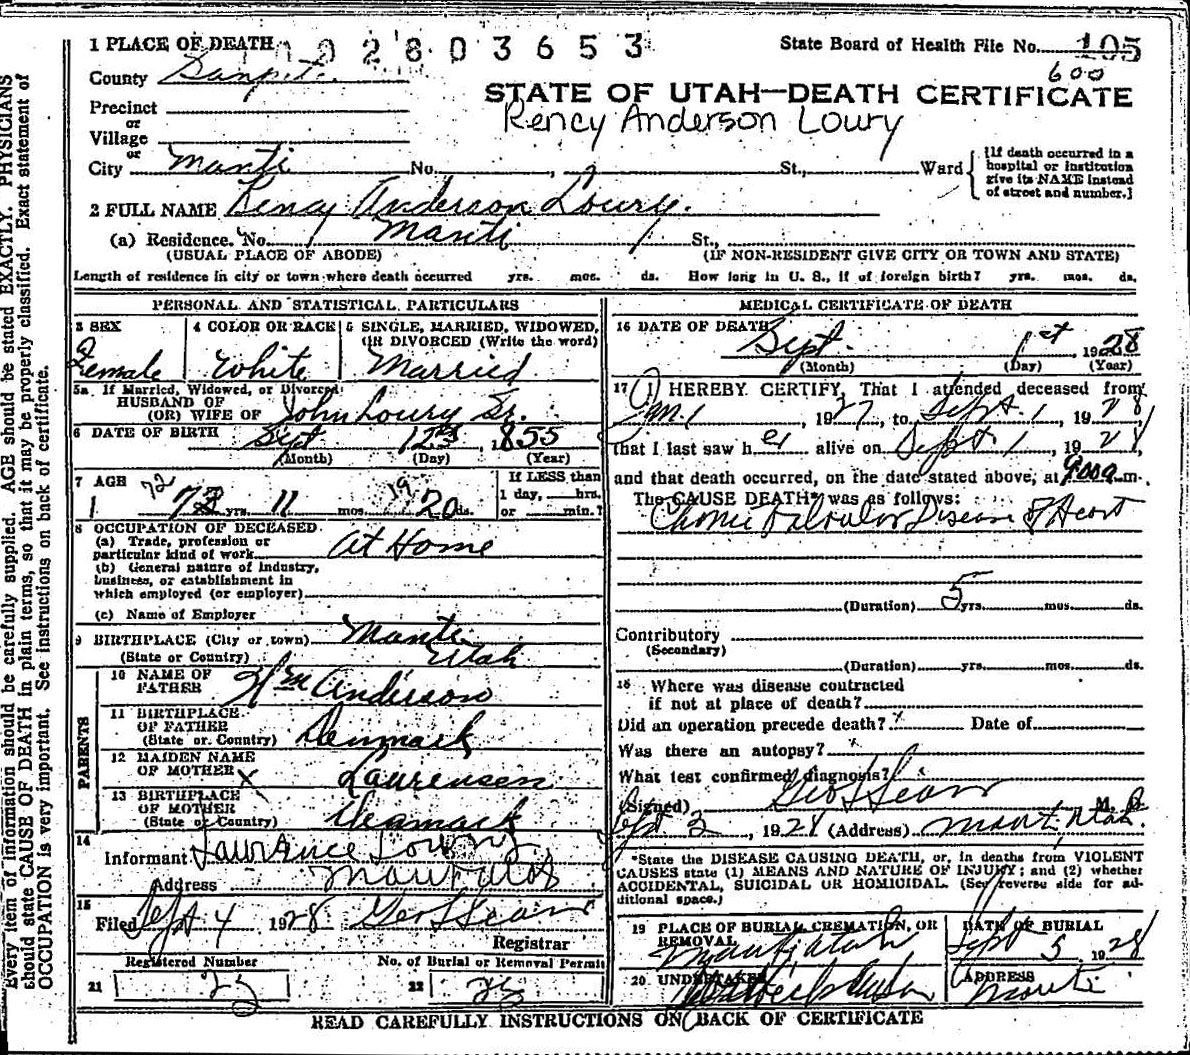 1 PLACE OF DEATH
02803653
State Board of Health File No. 105
County Sanpete
600
STATE OF UTAH—DEATH CERTIFICATE
Precinct
Rency Anderson Loury
or
Village
or
City Manti No. St., Ward
[If death occurred in a
hospital or institution
give its NAME instead
of street and number.]
2 FULL NAME Rency Anderson Loury.
(a) Residence. No. Manti St.,
(USUAL PLACE OF ABODE) (IF NON-RESIDENT GIVE CITY OR TOWN AND STATE)
Length of residence in city or town where death occurred yrs. mos. ds. How long in U. S., if of foreign birth? yrs. mos. ds.
PERSONAL AND STATISTICAL PARTICULARS
3 SEX
Female
4 COLOR OR RACE
White
5 SINGLE, MARRIED, WIDOWED,
OR DIVORCED (Write the word)
Married
5a If Married, Widowed, or Divorced
HUSBAND OF
(OR) WIFE OF John Loury Sr.
6 DATE OF BIRTH Sept 12 1855
(Month) (Day) (Year)
7 AGE
72 19
yrs. 11 mos. 20 ds.
If LESS than
1 day, hrs.
or min.?
8 OCCUPATION OF DECEASED
(a) Trade, profession or
particular kind of work At Home
(b) General nature of industry,
business, or establishment in
which employed (or employer)
(c) Name of Employer
9 BIRTHPLACE (City or town) Manti
(State or Country) Utah
PARENTS
10 NAME OF
FATHER Wm Anderson
11 BIRTHPLACE
OF FATHER
(State or Country) Denmark
12 MAIDEN NAME
OF MOTHER X Laurensen
13 BIRTHPLACE
OF MOTHER
(State or Country) Denmark
14
Informant Lawrence Lowry
Address Manti Utah
15
Filed Sept 4 1928
Registrar
Registered Number No. of Burial or Removal Permit
21 25 22 25
MEDICAL CERTIFICATE OF DEATH
16 DATE OF DEATH
Sept. 1st 1928
(Month) (Day) (Year)
17 (I) HEREBY CERTIFY, That I attended deceased from
1927, to Sept. 1, 1928,
that I last saw her alive on Sept 1, 1928,
and that death occurred, on the date stated above, at 9:00 a.m.
The CAUSE DEATH* was as follows:
Chronic Valvular Disease of Heart
(Duration) 5 yrs. mos. ds.
Contributory
(Secondary)
(Duration) yrs. mos. ds.
18 Where was disease contracted
if not at place of death?
Did an operation precede death? x Date of
Was there an autopsy? x
What test confirmed diagnosis? x
(Signed) M. D.
Sept 2, 1928 (Address) Manti Utah.
*State the DISEASE CAUSING DEATH, or, in deaths from VIOLENT
CAUSES state (1) MEANS AND NATURE OF INJURY; and (2) whether
ACCIDENTAL, SUICIDAL OR HOMICIDAL. (See reverse side for ad-
ditional space.)
19 PLACE OF BURIAL, CREMATION, OR
REMOVAL
Manti Utah
DATE OF BURIAL
Sept 5 1928
20 UNDERTAKER
ADDRESS
Manti
READ CAREFULLY INSTRUCTIONS ON BACK OF CERTIFICATE
Every item of information should be carefully supplied. AGE should be stated EXACTLY. PHYSICIANS
should state CAUSE OF DEATH in plain terms, so that it may be properly classified. Exact statement of
OCCUPATION is very important. See instructions on back of certificate.